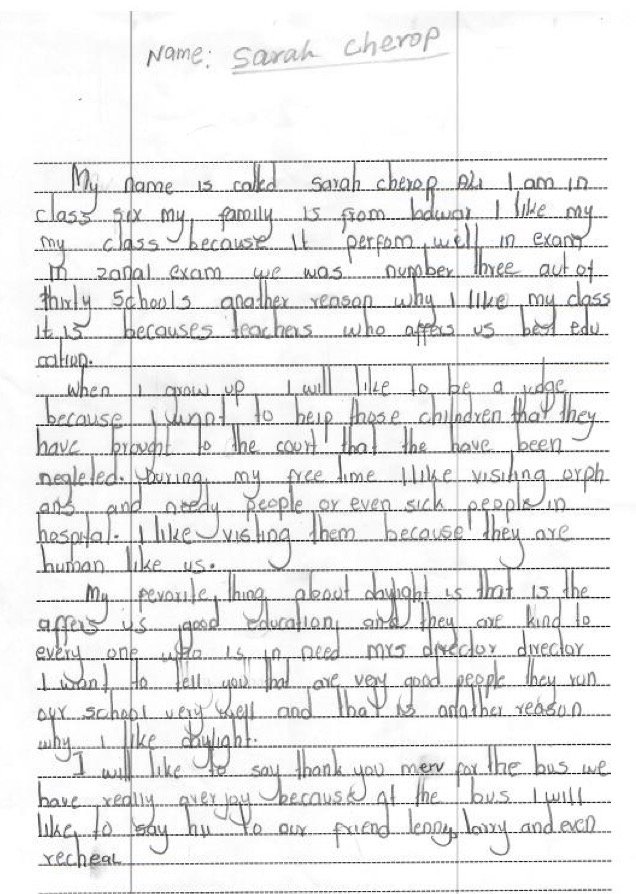 Name: Sarah Cherop
My name is called Sarah cherop Ali I am in
class six my family is from lodwar I like my
my class because it perfom well in exam
In zonal exam we was number three out of
thirty Schools another reason why I like my class
it is becauses teachers who affers us best edu
cation.
When I grow up I will like to be a judge
because I want to help those chilndren that they
have brought to the court that the have been
negleted. During my free time I like visiting orph
ans and needy people or even sick people in
hospital. I like visiting them because they are
human like us.
My fevorite thing about daylight is that is the
affers us good education and they are kind to
every one who is in need mrs director director
I want to tell you that are very good people they run
our school very well and that is another reason
why I like daylight.
I will like to say thank you merv for the bus we
have really over joy because of the bus I will
like to say hu to our friend lenny, larry and even
recheal